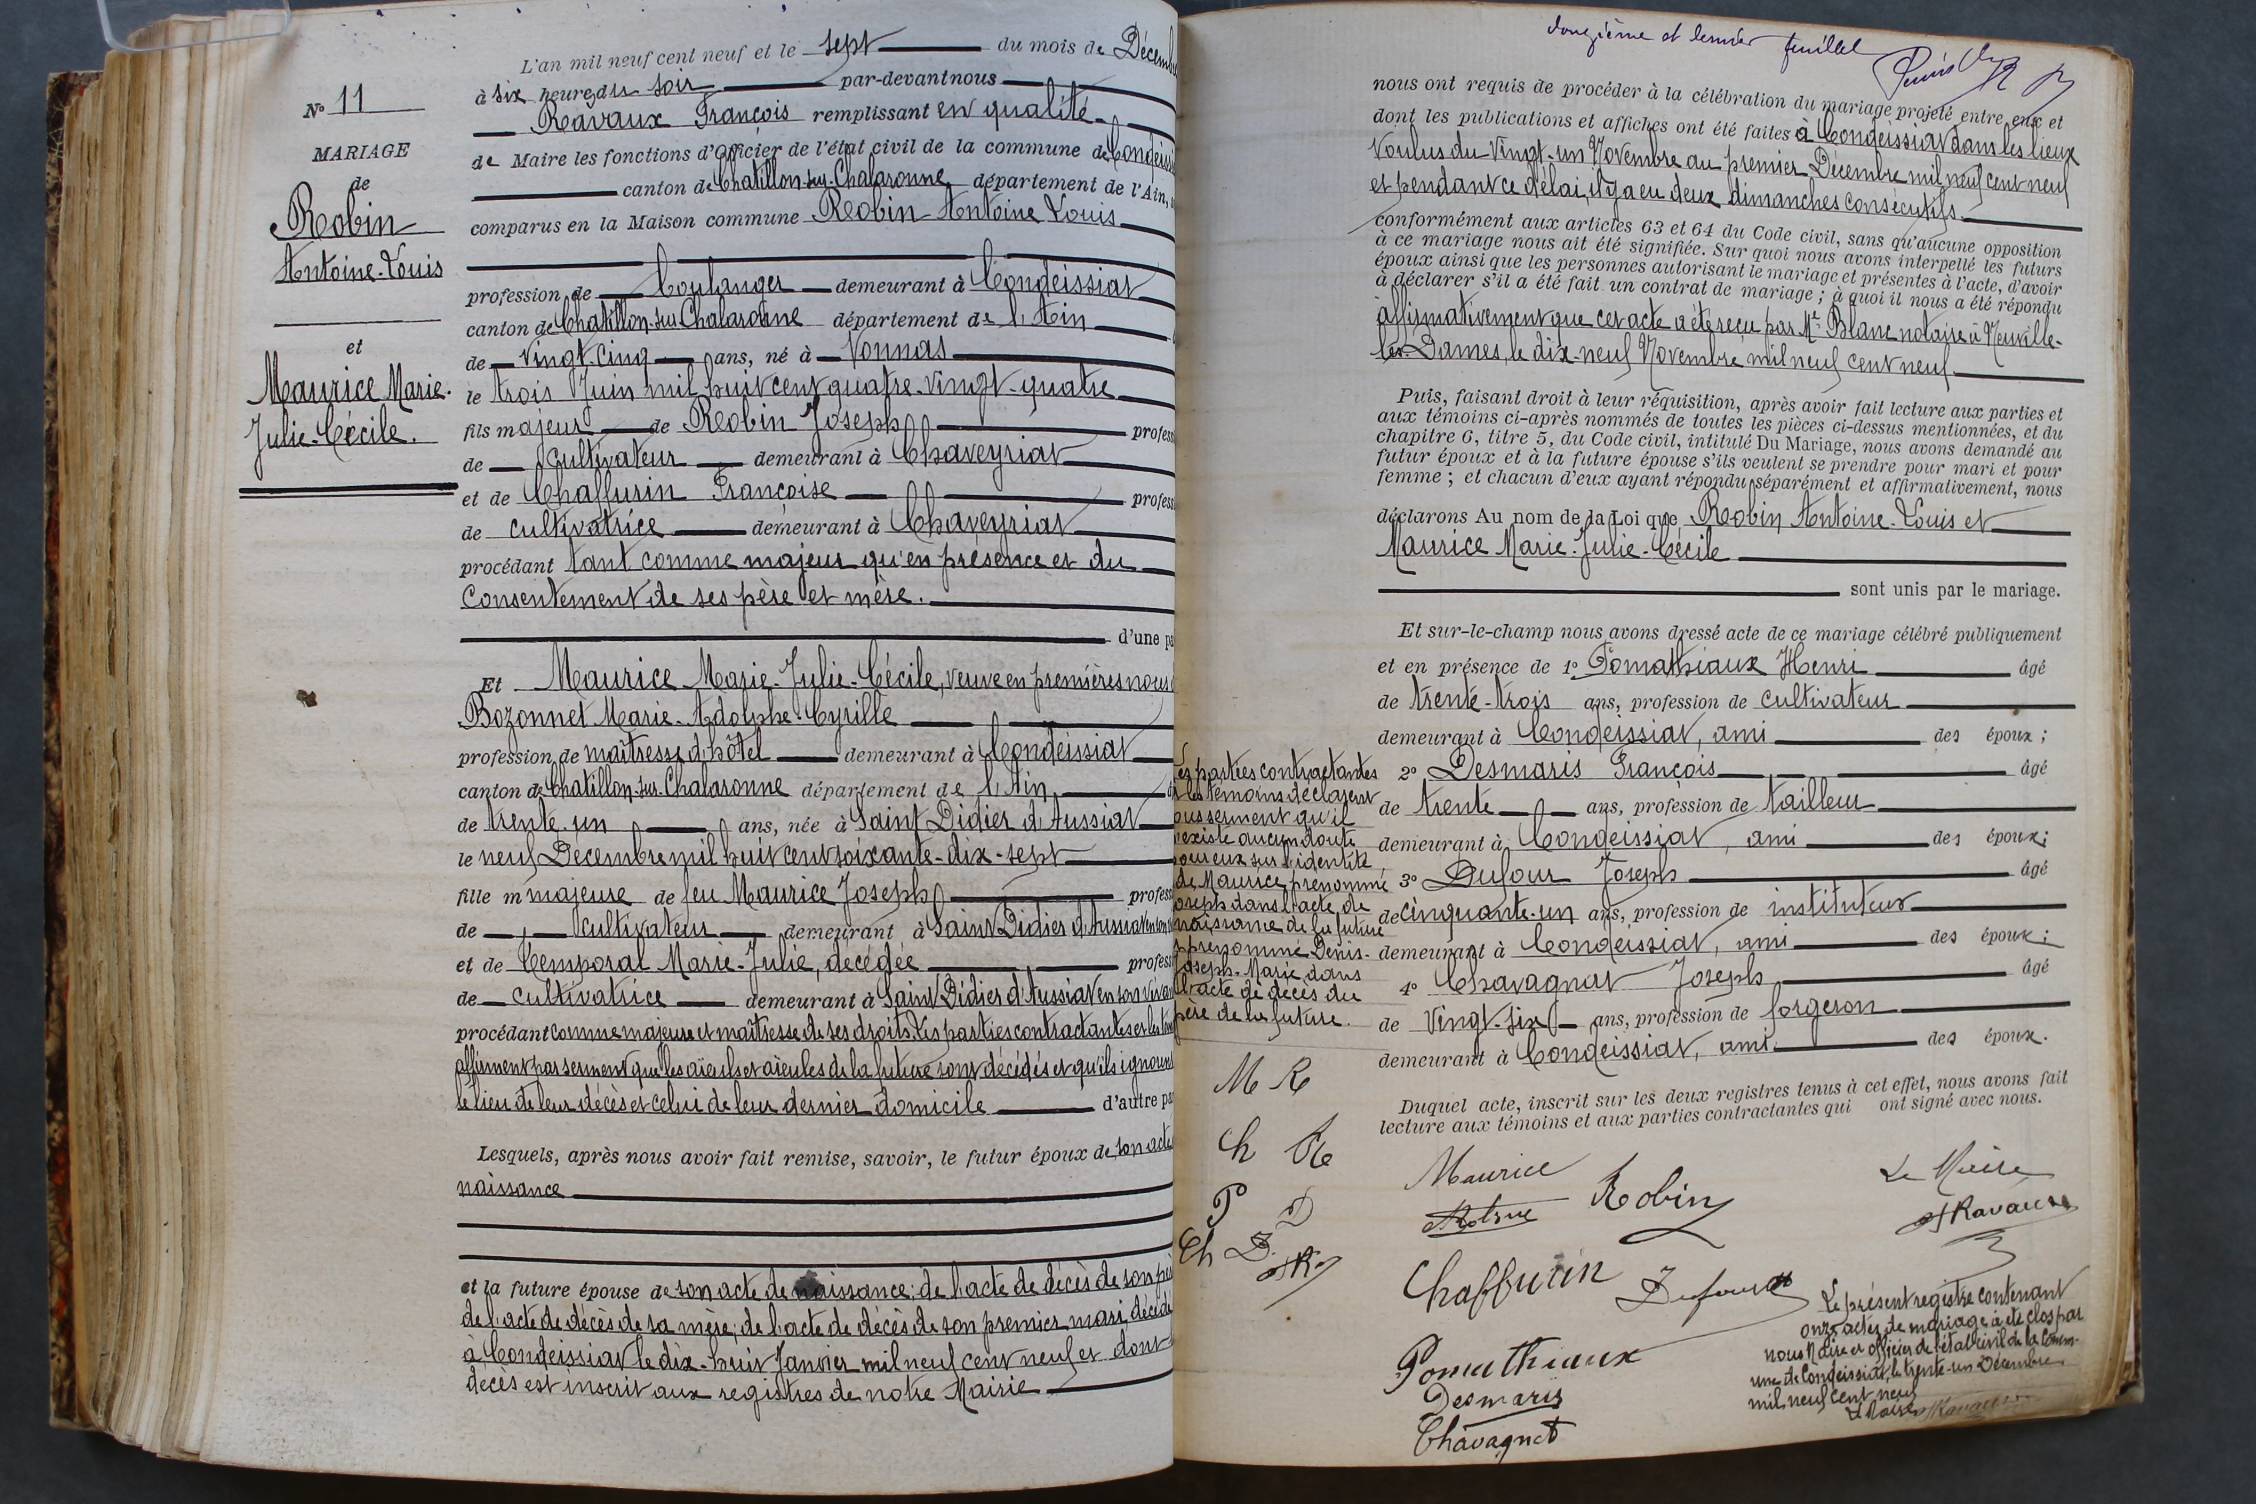 N° 11
MARIAGE
de
Robin
Antoine-Louis
et
Maurice Marie-
Julie-Cécile.
L'an mil neuf cent neuf et le sept du mois de Décemb
à six heures du soir par-devant nous
Ravaux François remplissant en qualité
de Maire les fonctions d'Officier de l'état civil de la commune de Condeissi
canton de Chatillon-sur-Chalaronne département de l'Ain,
comparus en la Maison commune Robin Antoine Louis
profession de boulanger demeurant à Condeissiat
canton de Chatillon-sur-Chalaronne département de l'Ain
de vingt-cinq ans, né à Vonnas
le trois Juin mil huit cent quatre-vingt-quatre
fils majeur de Robin Joseph profess
de cultivateur demeurant à Chaveyriat
et de Chaffurin Françoise profess
de cultivatrice demeurant à Chaveyriat
procédant tant comme majeur qu'en présence et du
consentement de ses père et mère.
d'une pa
Et Maurice Marie-Julie-Cécile, veuve en premières noces
Bozonnet Marie-Adolphe-Cyrille
profession de maîtresse d'hôtel demeurant à Condeissiat
canton de Chatillon-sur-Chalaronne département de l'Ain
de trente-un ans, née à Saint Didier d'Aussiat
le neuf Décembre mil huit cent soixante-dix-sept
fille m majeure de feu Maurice Joseph profess
de cultivateur demeurant à Saint Didier d'Aussiat en son
et de Temporal Marie-Julie, décédée profess
de cultivatrice demeurant à Saint Didier d'Aussiat en son viva
procédant comme majeure et maîtresse de ses droits. Les parties contractantes et les tém
affirment par serment que les aïeuls et aïeules de la future sont décédés et qu'ils ignorent
le lieu de leur décès et celui de leur dernier domicile d'autre pa
Lesquels, après nous avoir fait remise, savoir, le futur époux de son acte
naissance
et la future épouse de son acte de naissance; de l'acte de décès de son pè
de l'acte de décès de sa mère; de l'acte de décès de son premier mari, décédé
à Condeissiat le dix-huit Janvier mil neuf cent neuf et dont
décès est inscrit aux registres de notre Mairie
douzième et dernier feuillet
nous ont requis de procéder à la célébration du mariage projeté entre eux et
dont les publications et affiches ont été faites à Condeissiat dans les lieux
voulus du vingt-un Novembre au premier Décembre mil neuf cent neuf
et pendant ce délai, il y a eu deux dimanches consécutifs.
conformément aux articles 63 et 64 du Code civil, sans qu'aucune opposition
à ce mariage nous ait été signifiée. Sur quoi nous avons interpellé les futurs
époux ainsi que les personnes autorisant le mariage et présentes à l'acte, d'avoir
à déclarer s'il a été fait un contrat de mariage; à quoi il nous a été répondu
affirmativement que cet acte a été reçu par Me Blanc notaire à Neuville-
les-Dames, le dix-neuf Novembre mil neuf cent neuf
Puis, faisant droit à leur réquisition, après avoir fait lecture aux parties et
aux témoins ci-après nommés de toutes les pièces ci-dessus mentionnées, et du
chapitre 6, titre 5, du Code civil, intitulé Du Mariage, nous avons demandé au
futur époux et à la future épouse s'ils veulent se prendre pour mari et pour
femme; et chacun d'eux ayant répondu séparément et affirmativement, nous
déclarons Au nom de la Loi que Robin Antoine-Louis et
Maurice Marie-Julie-Cécile
sont unis par le mariage.
Et sur-le-champ nous avons dressé acte de ce mariage célébré publiquement
et en présence de 1° Pomathiaux Henri âgé
de trente-trois ans, profession de cultivateur
demeurant à Condeissiat, ami des époux;
2° Desmaris François âgé
de trente ans, profession de tailleur
demeurant à Condeissiat, ami des époux;
3° Dufour Joseph âgé
de cinquante-un ans, profession de instituteur
demeurant à Condeissiat, ami des époux;
4° Chavagnat Joseph âgé
de vingt-six ans, profession de forgeron
demeurant à Condeissiat, ami des époux.
Duquel acte, inscrit sur les deux registres tenus à cet effet, nous avons fait
lecture aux témoins et aux parties contractantes qui ont signé avec nous.
Les parties contractantes
et les témoins déclarent
sous serment qu'il
n'existe aucun doute
pour eux sur l'identité
de Maurice prénommé
Joseph dans l'acte de
naissance de la future
prénommé Denis-
Joseph-Marie dans
l'acte de décès du
père de la future.
M R
Ch R
P D
Ch D.
Maurice
Robin
Le Maire
Ravaux
Chaffurin
Dufour
Pomathiaux
Desmaris
Chavagnat
Le présent registre contenant
onze actes de mariage a été clos par
nous Maire et officier de l'état civil de la Comm-
une de Condeissiat, le trente-un Décembre
mil neuf cent neuf
Le Maire Ravaux